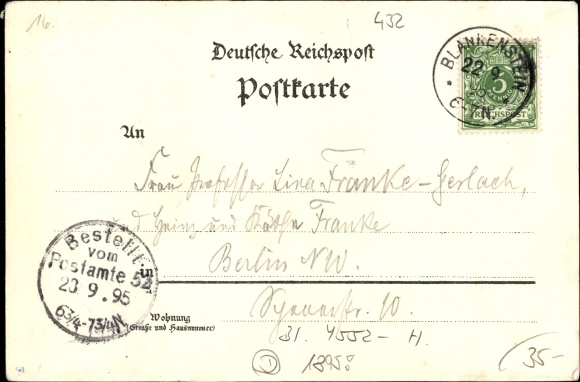 16.
432
Deutsche Reichspost
Postkarte
BLANKENSTEIN
22 9
6-7N.
5
REICHSPOST
An
Frau Professor Lina Franke-Gerlach,
und Heinz und Käthe Franke
Bestellt
vom
Postamte 52
23.9.95
6 3/4-7 3/4 N
in
Berlin NW.
Wohnung
(Straße und Hausnummer)
10.
Bl. 4552 - H.
D 1895:
35-